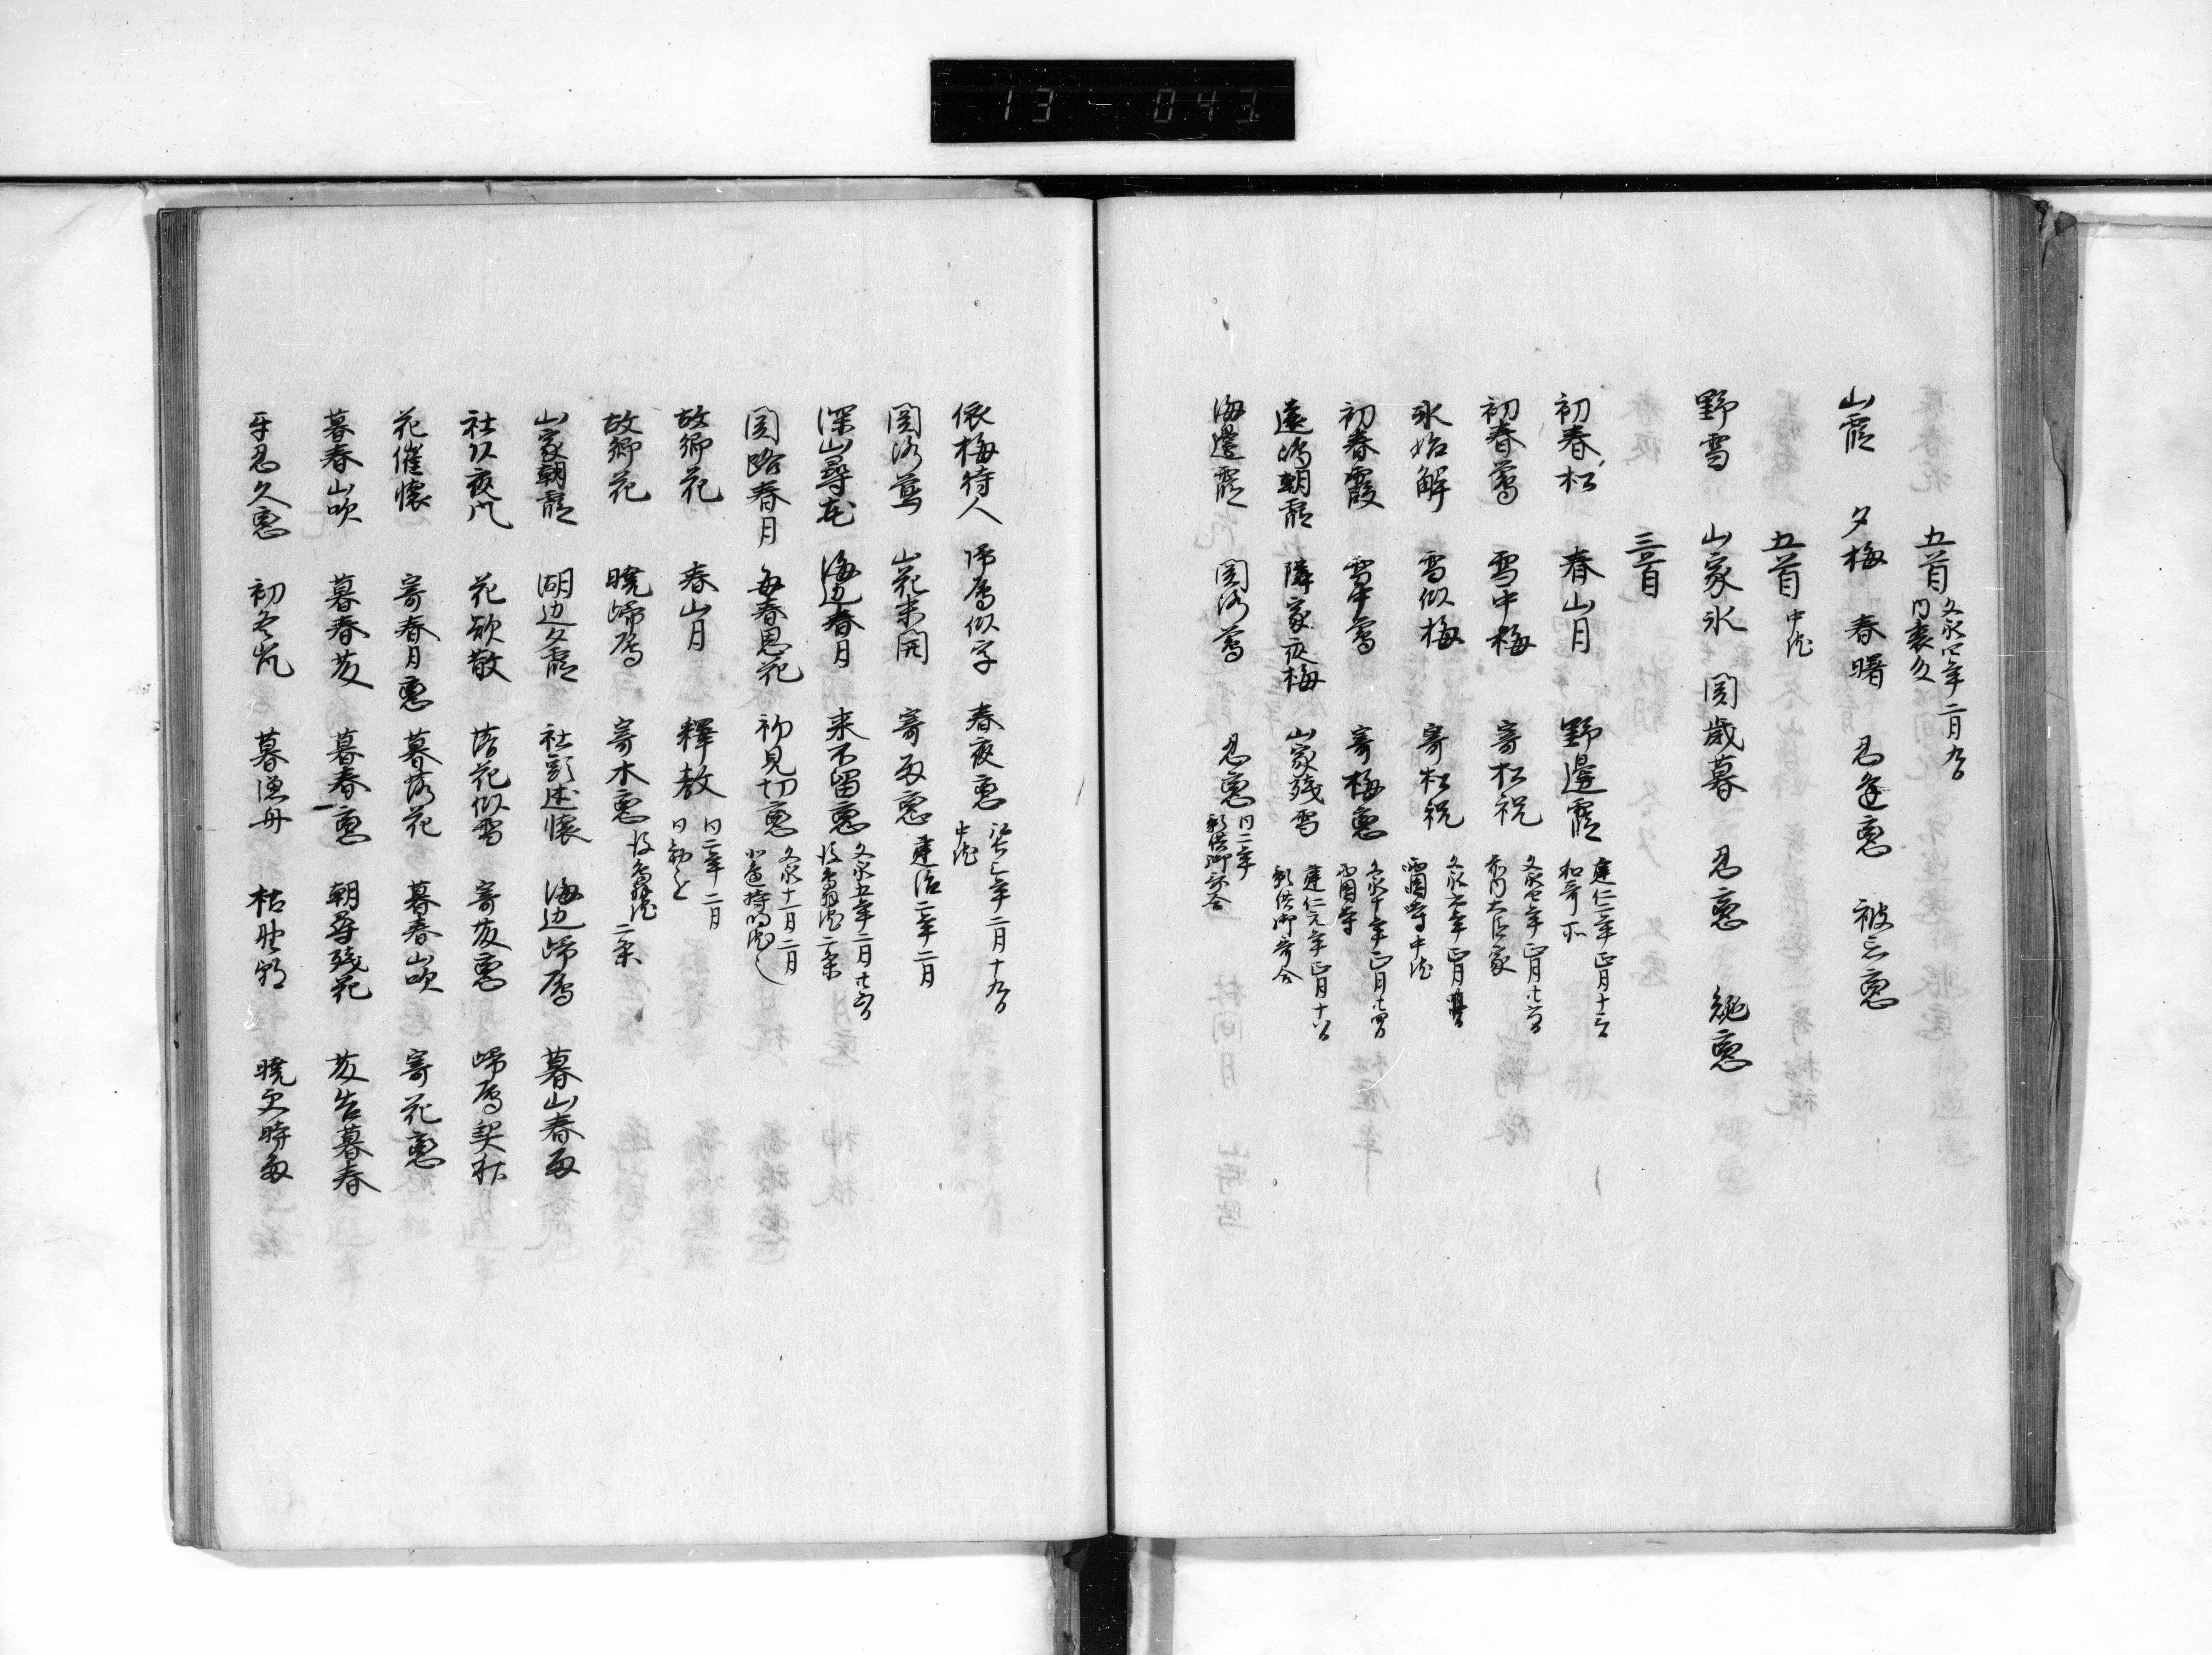 13 - 043
五首 文永四年二月九日
内裏
山霞 夕梅 春曙 忍逢恋 被忘恋
五首 中院
野雪 山家氷 関歳暮 忍恋 絶恋
三首
初春松 春山月 野邊霞 建仁二年正月十三日
和哥所
初春鶯 雪中梅 寄松祝 文永七年正月
前内大臣家
氷始解 雪似梅 寄松祝 文永七年正月
西園寺 中院
初春霞 雪中鶯 寄梅恋 文永十年正月廿四日
西園寺
遠嶋朝霞 隣家夜梅 山家残雪 建仁元年正月十八日
影供御哥合
海邊霞 関路鶯 忍恋 同二年
影供御哥合
依梅待人 帰鴈似字 春夜恋 二月十九日
中院
関路鶯 山花未開 寄雨恋 建治二年二月
深山尋花 海辺春月 来不留恋 文永五年二月
二条
関路春月 毎春思花 初見切恋 文永十一月二月
故郷花 春山月 釋教 同二年二月
故郷花 暁帰鴈 寄木恋 二条
山家朝霞 湖辺夕霞 社頭述懐 海辺帰鴈 暮山春雨
社頭夜風 花欲散 落花似雪 寄友恋 帰鴈契秋
花催懐 寄春月恋 暮落花 暮春山吹 寄花恋
暮春山吹 暮春友 暮春恋 朝尋残花 友告暮春
年忍久恋 初冬嵐 暮漁舟 枯野朝 暁更時雨